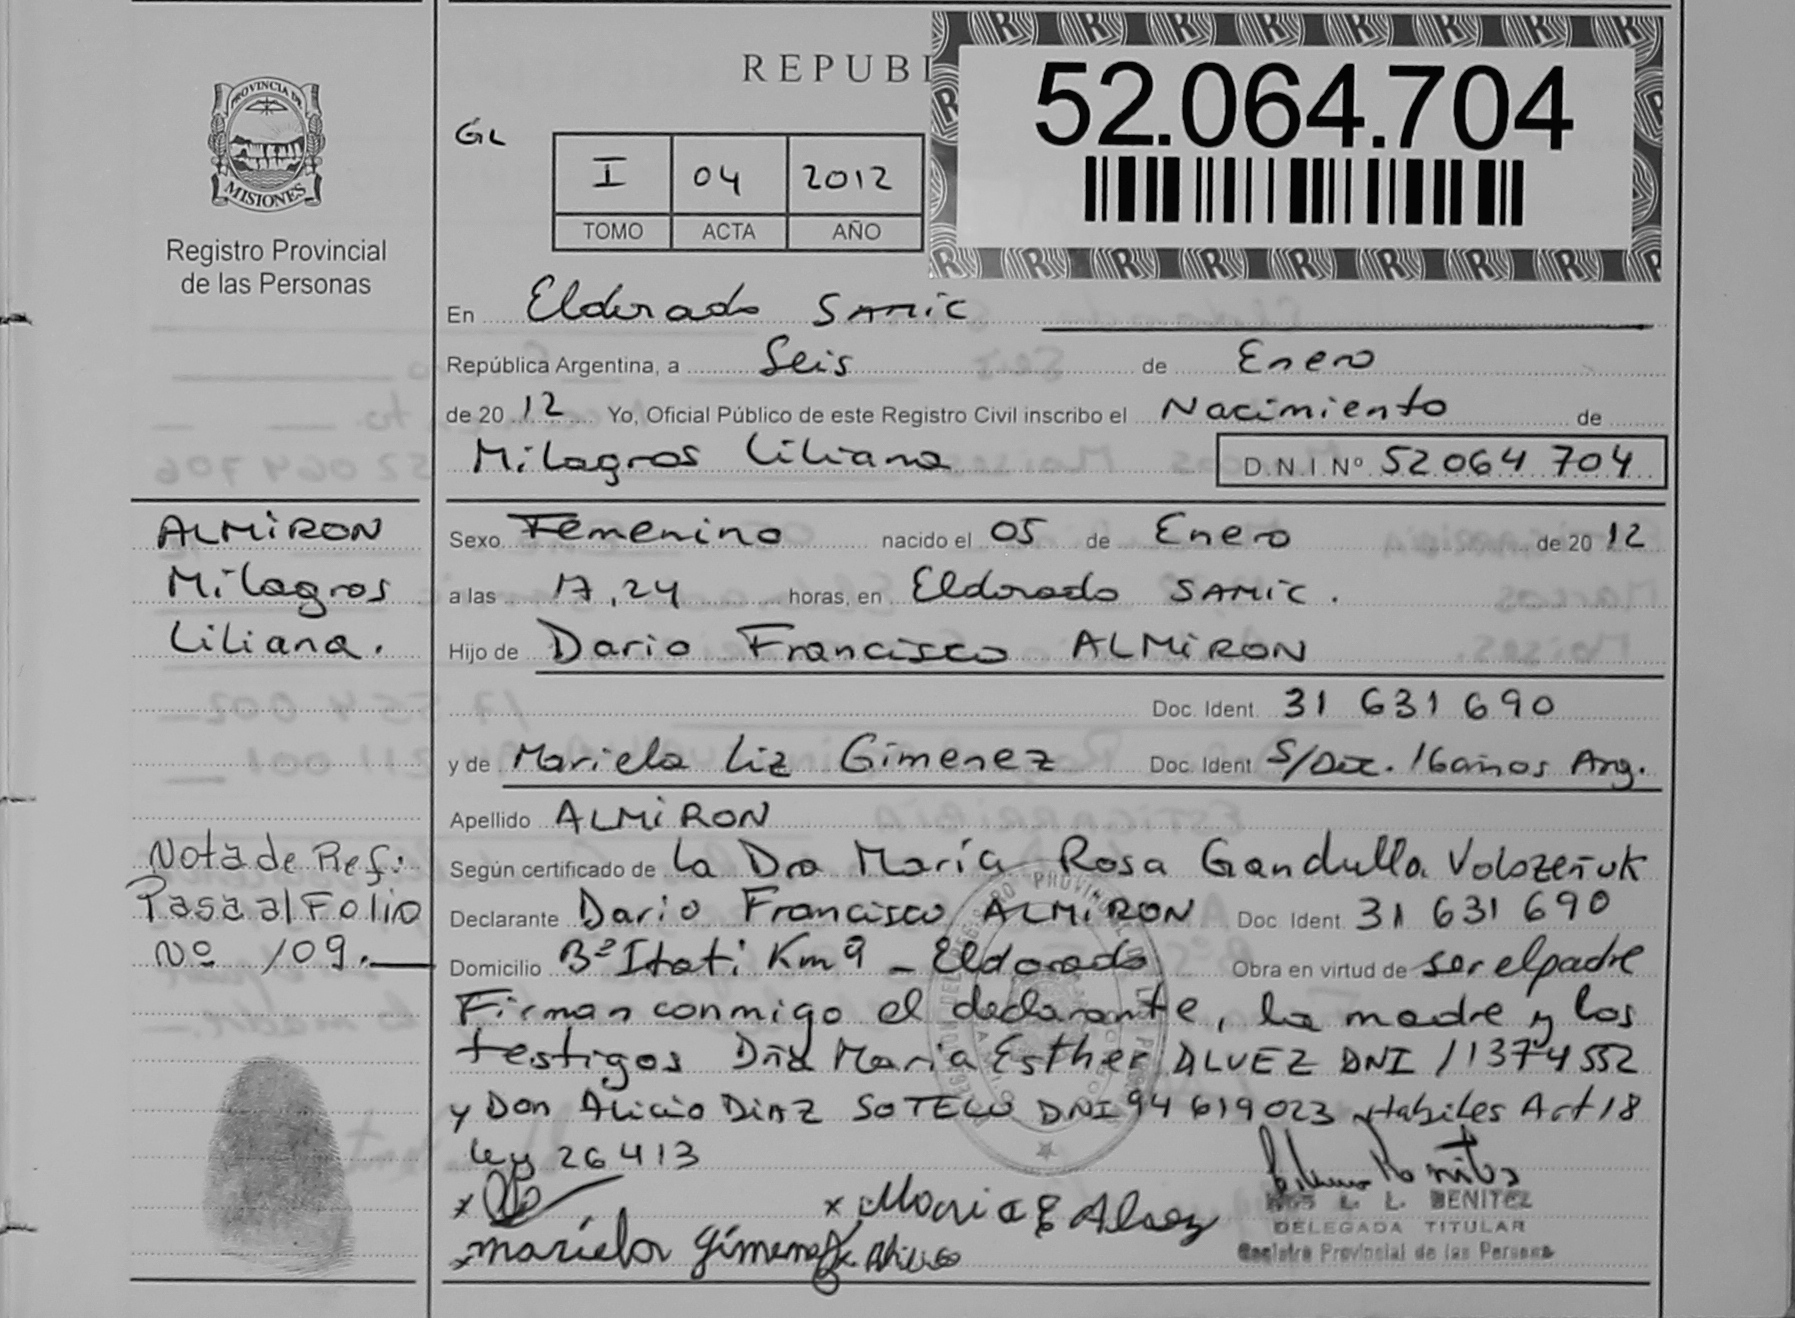 REPUBL
52.064.704
PROVINCIA DE
MISIONES
Registro Provincial
de las Personas
GL
I 04 2012
TOMO ACTA AÑO
En Eldorado SAMIC
República Argentina, a Seis de Enero
de 2012 Yo, Oficial Público de este Registro Civil inscribo el Nacimiento de
Milagros Liliana D.N.I.Nº 52064 704
ALMIRON
Milagros
Liliana.
Sexo Femenino nacido el 05 de Enero de 2012
a las 17,24 horas, en Eldorado SAMIC.
Hijo de Dario Francisco ALMIRON
Doc. Ident. 31 631 690
y de Mariela Liz Gimenez Doc. Ident S/Doc. 16años Arg.
Apellido ALMIRON
Según certificado de La Dra María Rosa Gandulla Volozeñuk
Declarante Dario Francisco ALMIRON Doc Ident. 31 631 690
Domicilio Bº Itati Km 9 - Eldorado Obra en virtud de ser el padre
Firman conmigo el declarante, la madre y los
testigos Dña Maria Esther ALVEZ DNI 11374552
y Don Alicio DIAZ SOTELO DNI 94 619023 Habiles Art 18
Ley 26413
Nota de Ref:
Pasa al Folio
Nº 109.
x Maria E Alvez
x mariela gimenez x Alicio
L. L. BENITEZ
DELEGADA TITULAR
Registro Provincial de las Personas